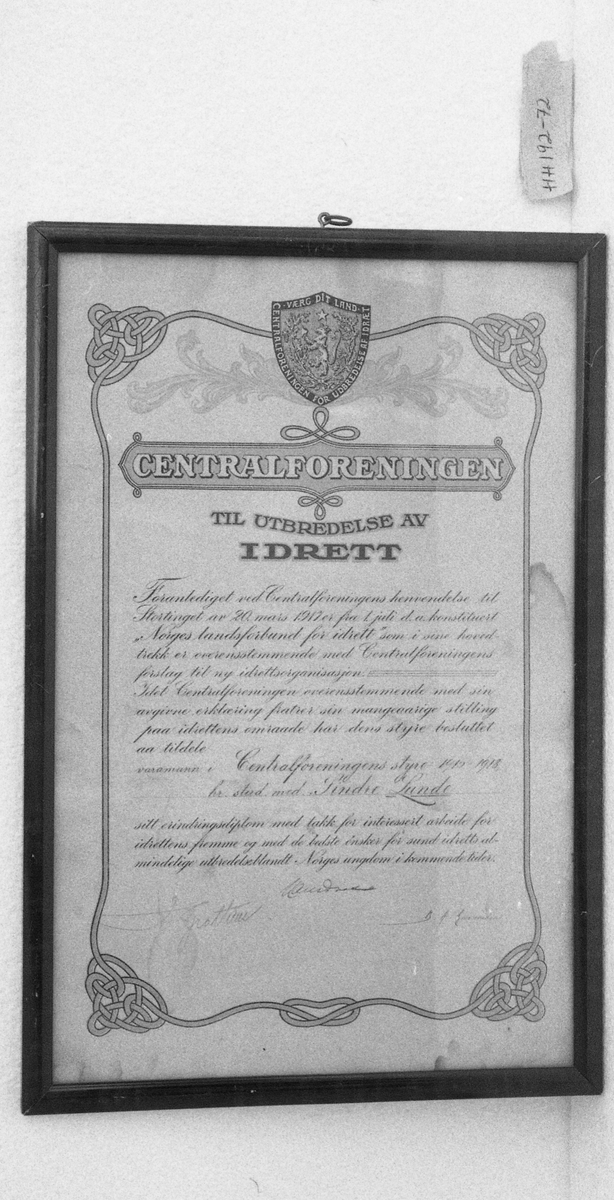 HH 142-72
VÆRG DIT LAND
CENTRALFORENINGEN FOR UDBREDELSE AF IDRÆT
CENTRALFORENINGEN
TIL UTBREDELSE AV
IDRETT
Foranlediget ved Centralforeningens henvendelse til
Stortinget av 20. mars 1917 er fra 1. juli d.a. konstituert
„Norges landsforbund for idrett" som i sine hoved-
trekk er overensstemmende med Centralforeningens
forslag til ny idrettsorganisasjon.
Idet Centralforeningen overensstemmende med sin
avgivne erklæring fratrer sin mangeaarige stilling
paa idrettens omraade har dens styre besluttet
aa tildele
varamann i Centralforeningens styre 1918
hr. stud. med. Sindre Lunde
sitt erindringsdiplom med takk for interessert arbeide for
idrettens fremme og med de bedste ønsker for sund idretts al-
mindelige utbredelse blandt Norges ungdom i kommende tider.